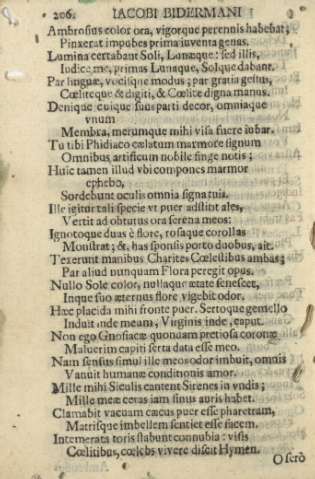 206. IACOBI BIDERMANI
Ambrosius color ora, vigorque perennis habebat;
Pinxerat impubes prima iuventa genas.
Lumina certabant Soli, Lunæque: sed illis,
Iudice me, primas Lunaque, Solque dabant.
Par linguæ, vocisque modus; par gratia gestus,
Cœliteque & digiti, & Cœlite digna manus.
Denique cuique suus parti decor, omniaque
vnum
Membra, merumque mihi visa fuere iubar.
Tu tibi Phidiaco cælatum marmore signum
Omnibus artificum nobile finge notis;
Huic tamen illud vbi compones marmor
ephebo,
Sordebunt oculis omnia signa tuis.
Ille igitur tali specie vt puer adstitit ales,
Vertit ad obtutus ora serena meos:
Ignotoque duas è flore, rosaque corollas
Monstrat; &, has sponsis porto duobus, ait.
Texerunt manibus Charites Cœlestibus ambas;
Par aliud nunquam Flora peregit opus.
Nullo Sole color, nullaque ætate senescet,
Inque suo æternus flore vigebit odor.
Hæc placida mihi fronte puer. Sertoque gemello
Induit inde meum, Virginis inde, caput.
Non ego Gnosiacæ quondam pretiosa coronæ
Maluerim capiti serta data esse meo.
Nam sensus simul ille meos odor imbuit, omnis
Vanuit humanæ conditionis amor.
Mille mihi Siculis cantent Sirenes in vndis;
Mille meæ ceras iam sinus auris habet.
Clamabit vacuam cæcus puer esse pharetram,
Matrisque imbellem sentiet esse facem.
Intemerata toris stabunt connubia: visis
Cœlitibus, cœlebs vivere discit Hymen.
O serò